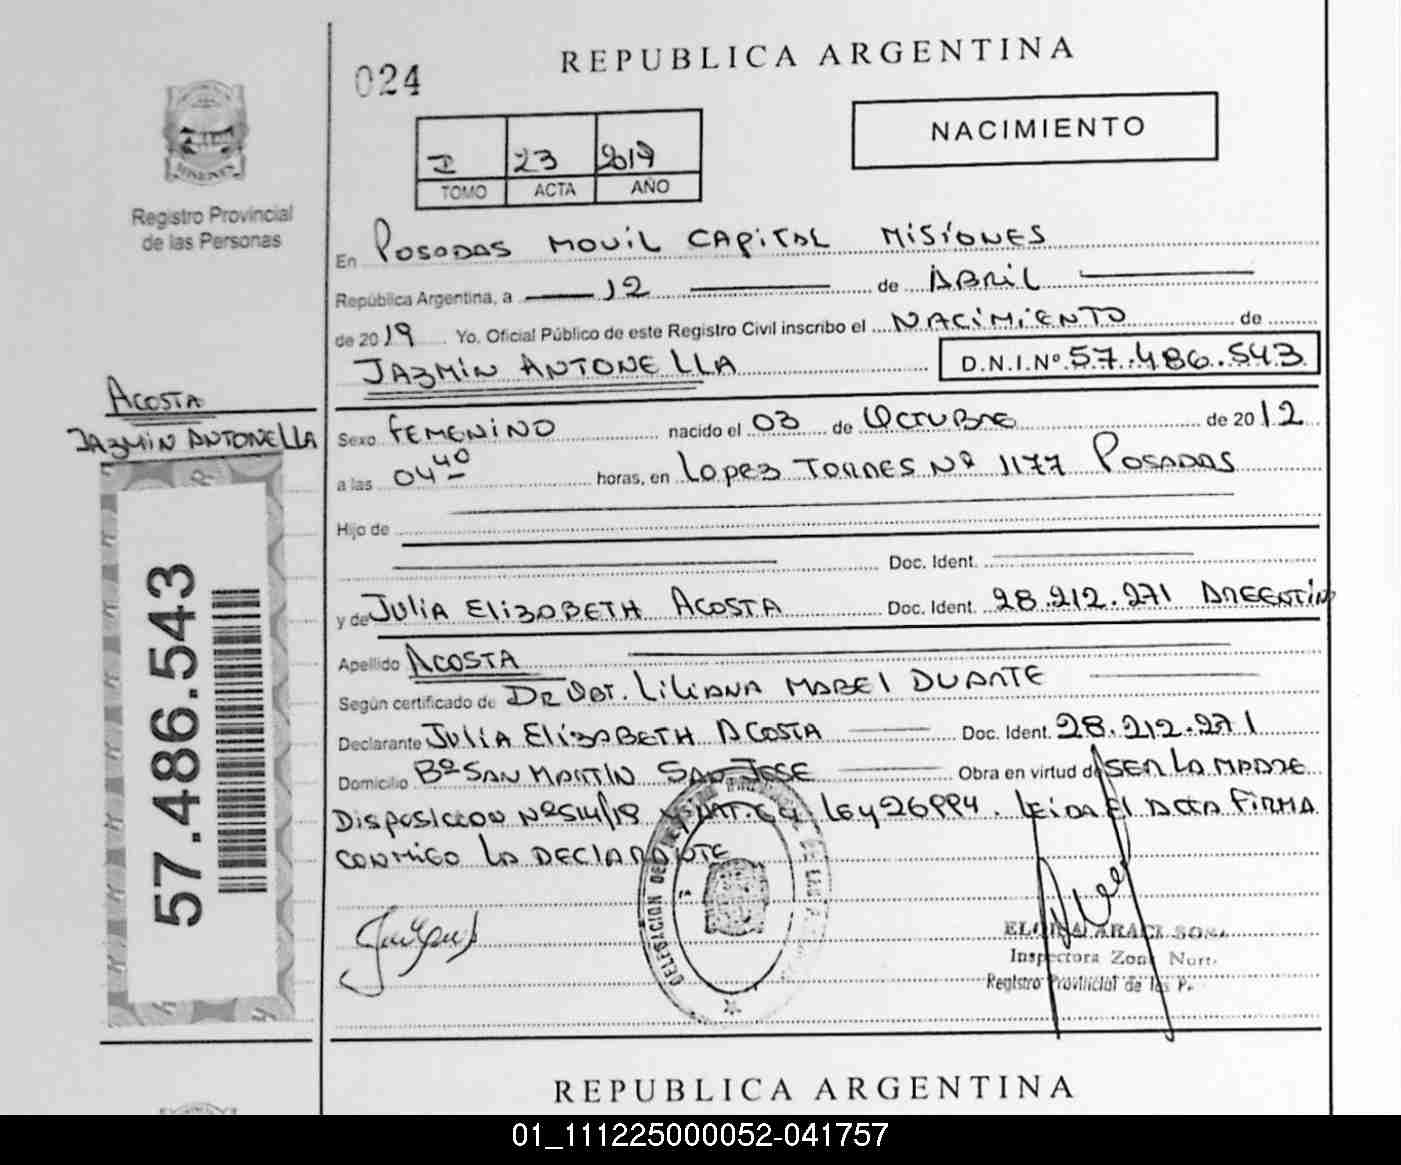 024
REPUBLICA ARGENTINA
NACIMIENTO
I 23 2019
TOMO ACTA AÑO
Registro Provincial
de las Personas
En Posadas Movil Capital Misiones
República Argentina, a 12 de Abril
de 2019 Yo, Oficial Público de este Registro Civil inscribo el Nacimiento de
Jazmin Antonella D.N.I.Nº 57.486.543
Acosta
Jazmin Antonella
57.486.543
Sexo Femenino nacido el 03 de Octubre de 2012
a las 04 40 horas, en Lopez Torres Nº 1177 Posadas
Hijo de
Doc. Ident.
y de Julia Elizabeth Acosta Doc. Ident. 28.212.271 Argentin
Apellido Acosta
Según certificado de Dr Obt. Liliana Mabel Duarte
Declarante Julia Elizabeth Acosta Doc. Ident. 28.212.271
Domicilio Bº San Martin San Jose Obra en virtud de ser la madre
Disposicion Nº 514/18 Ley 26994. Leida el acta firma
conmigo la declarante
DELEGACION DEL
ELOISA ARACI SOSA
Inspectora Zona Norte
Registro Provincial de las P.
REPUBLICA ARGENTINA
01_111225000052-041757